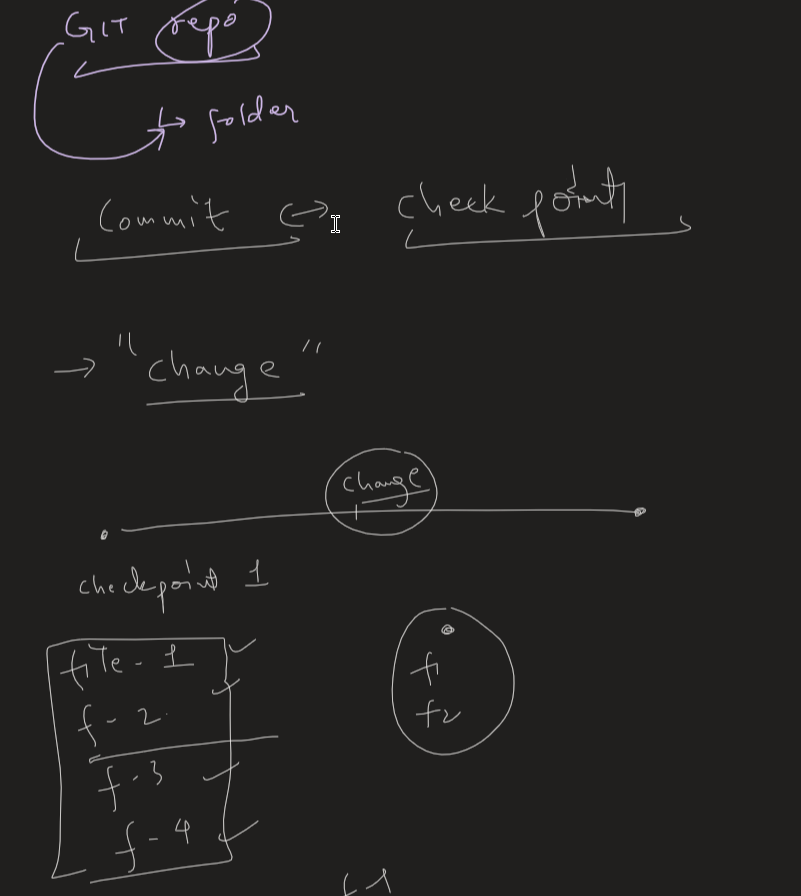 GIT repo
↳ folder
Commit ↔ check point
→ "change"
change
checkpoint 1
file - 1
f - 2
f - 3
f - 4
f1
f2